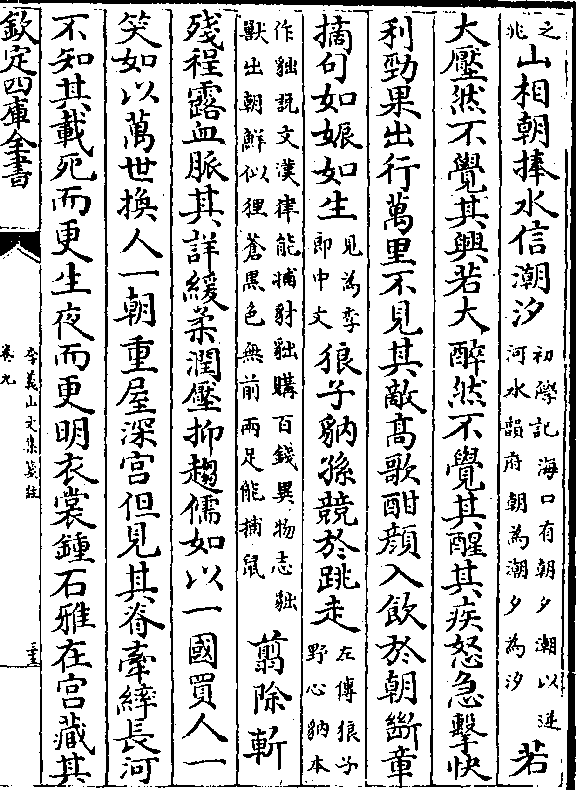 之兆山相朝捧水信潮汐初學記海口有朝夕潮以逆河水韻府朝為潮夕為汐若
大壓然不覺其興若大醉然不覺其醒其疾怒急擊快
利勁果出行萬里不見其敵高歌酣顔入飲於朝斷章
摘句如娠如生見為李即中文狼子豽孫競於跳走左傳狼子野心豽本
作貀説文漢律能捕豺貀購百錢異物志貀獸出朝鮮似狸蒼黒色無前兩足能捕鼠翦除斬
殘程露血脈其詳緩柔潤壓抑趨儒如以一國買人一
笑如以萬世換人一朝重屋深宫但見其脊牽繂長河
不知其載死而更生夜而更明衣裳鍾石雅在宫藏其
欽定四庫全書
李義山文集箋註
卷九